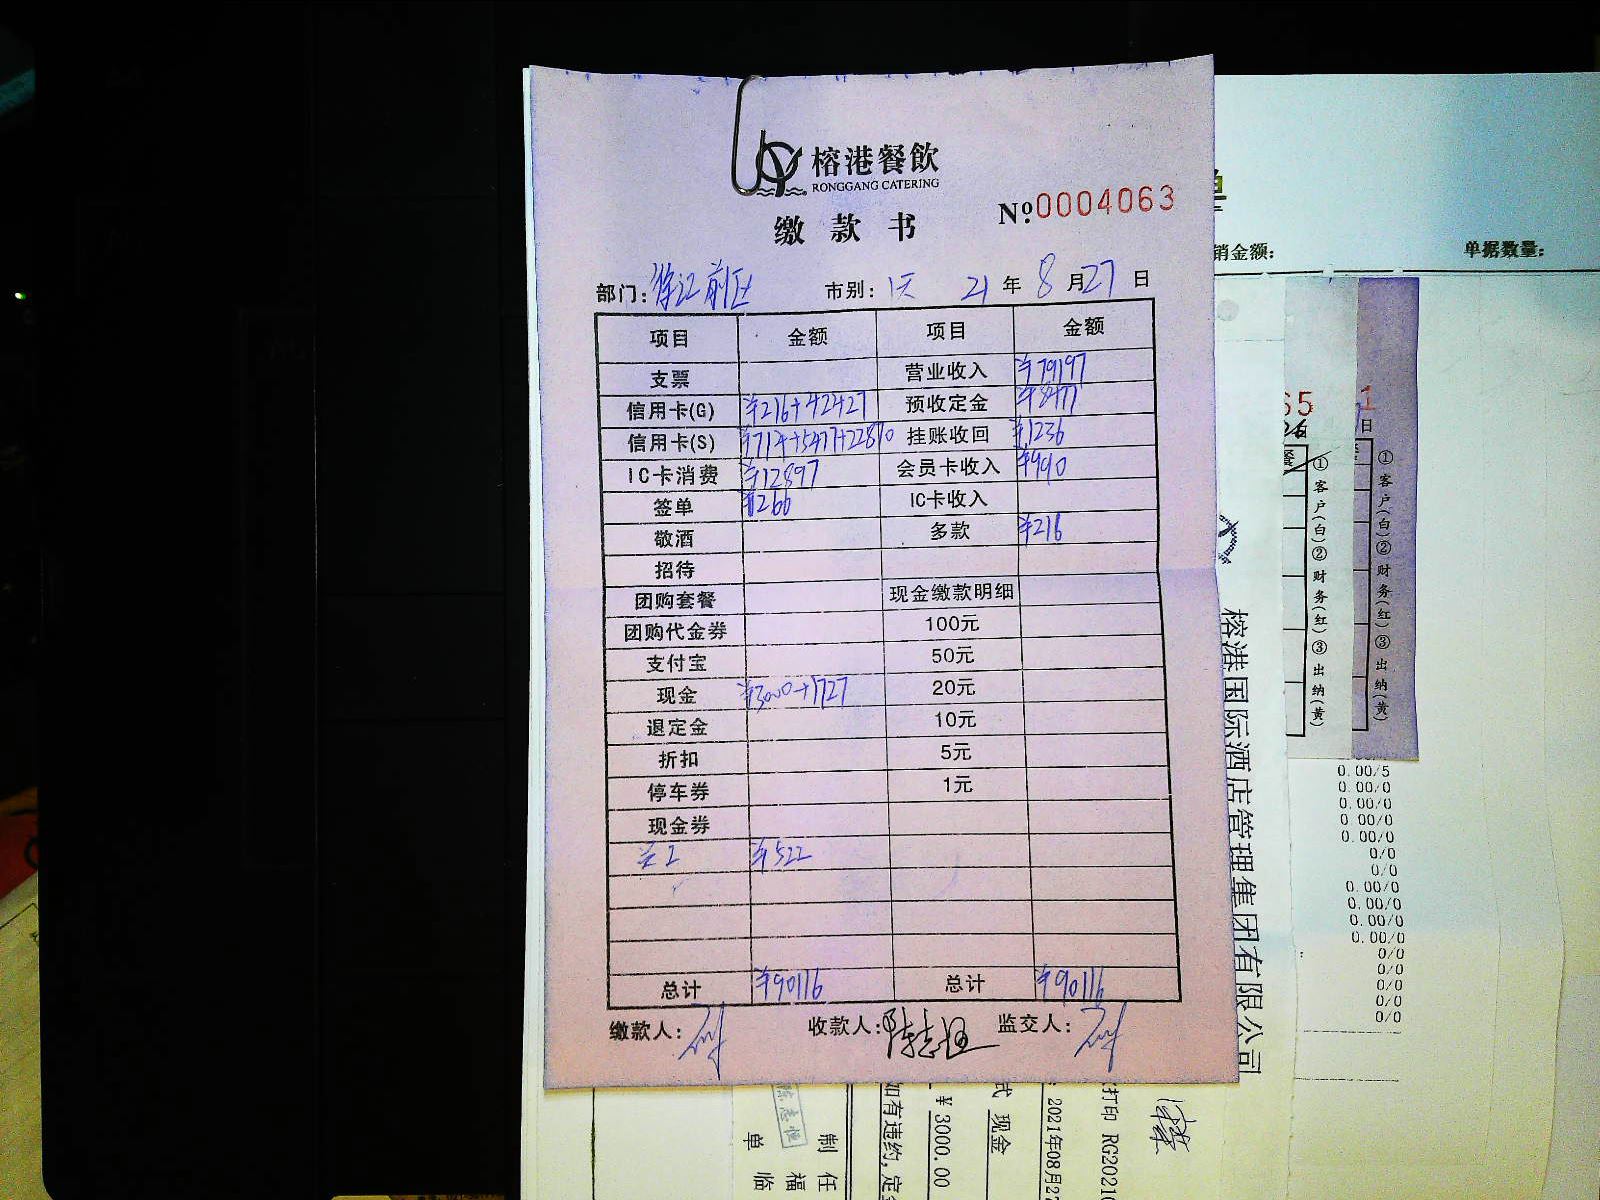 榕港餐飲
RONGGANG CATERING
缴款书
№0004063
部门: 前区 市别: 21年8月27日
项目 金额 项目 金额
支票 营业收入 ¥79197
信用卡(G) ¥216+42427 预收定金 ¥8477
信用卡(S) ¥714+5477+22870 挂账收回 ¥1236
IC卡消费 ¥12897 会员卡收入 ¥990
签单 ¥266 IC卡收入
敬酒 多款 ¥216
招待
团购套餐 现金缴款明细
团购代金券 100元
支付宝 50元
现金 ¥3000+1727 20元
退定金 10元
折扣 5元
停车券 1元
现金券
¥522
总计 ¥90116 总计 ¥90116
缴款人: 收款人: 监交人:
销金额: 单据数量:
65
1
日
日
①客户(白)②财务(红)③出纳(黄)
①客户(白)②财务(红)③出纳(黄)
榕港国际酒店管理集团有限公司
0.00/5
0.00/0
0.00/0
0.00/0
0.00/0
0/0
0/0
0.00/0
0.00/0
0.00/0
0.00/0
0/0
0/0
0/0
0/0
0/0
打印 RG2021
2021年08月27
式 现金
¥ 3000.00
如有违约,定
制 任
单 福 临